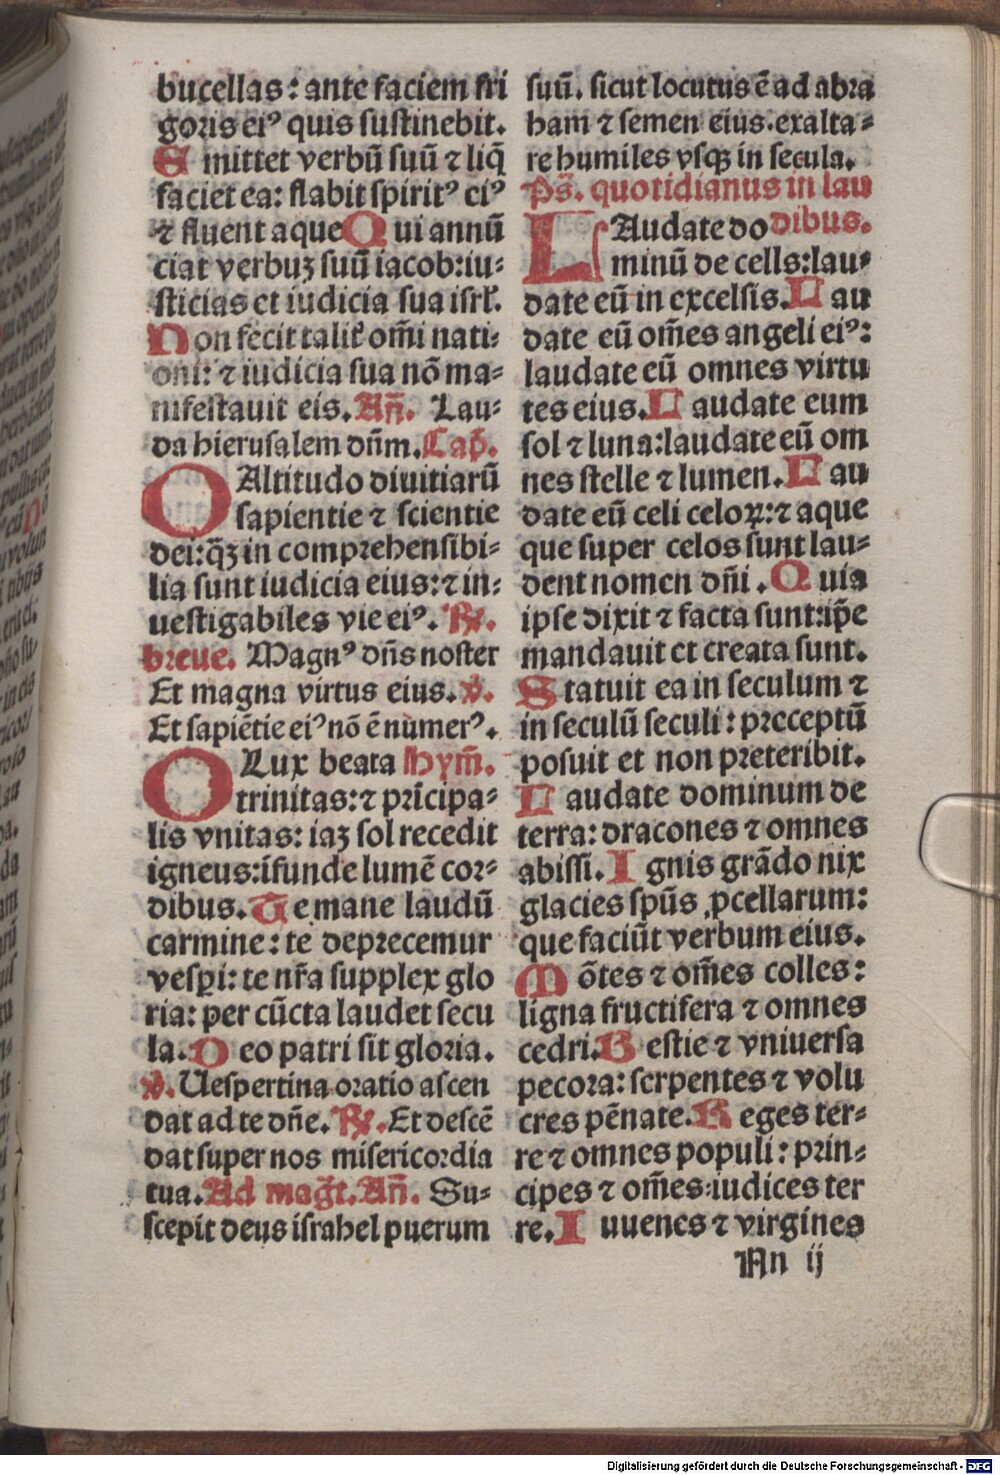 bucellas: ante faciem fri
goris eiꝰ quis sustinebit.
E mittet verbū suū ⁊ liq̄
faciet ea: flabit spiritꝰ eiꝰ
⁊ fluent aque Q ui annū
ciat verbuꝫ suū iacob: iu⸗
sticias et iudicia sua isrl̓.
N on fecit talit̓ om̄i nati⸗
oni: ⁊ iudicia sua nō ma⸗
nifestauit eis. An̄. Lau⸗
da hierusalem dn̄m. Cap̄.
O Altitudo diuitiarū
sapientie ⁊ scientie
dei: q̄ꝫ in comprehensibi⸗
lia sunt iudicia eius: ⁊ in⸗
uestigabiles vie eiꝰ. ℟.
breue. Magnꝰ dn̄s noster
Et magna virtus eius. ℣.
Et sapiētie eiꝰ nō ē numerꝰ.
O Lux beata Hym̄.
trinitas: ⁊ prīcipa⸗
lis vnitas: iaꝫ sol recedit
igneus: īfunde lumē cor⸗
dibus. T e mane laudū
carmine: te deprecemur
vesꝑi: te nr̄a supplex glo
ria: per cūcta laudet secu
la. D eo patri sit gloria.
℣. Uespertina oratio ascen
dat ad te dn̄e. ℟. Et descē
dat super nos misericordia
tua. Ad magt̄. An̄. Su⸗
scepit deus israhel puerum
suū. sicut locutus ē ad abra
ham ⁊ semen eius. exalta⸗
re humiles vsqꝫ in secula.
Ps̄. quotidianus in lau
L Audate do dibus.
minū de cells: lau⸗
date eū in excelsis. L au
date eū om̄es angeli eiꝰ:
laudate eū omnes virtu
tes eius. L audate eum
sol ⁊ luna: laudate eū om
nes stelle ⁊ lumen. L au
date eū celi celoꝝ: ⁊ aque
que super celos sunt lau⸗
dent nomen dn̄i. Q uia
ipse dixit ⁊ facta sunt: ip̄e
mandauit et creata sunt.
S tatuit ea in seculum ⁊
in seculū seculi: preceptū
posuit et non preteribit.
L audate dominum de
terra: dracones ⁊ omnes
abissi. I gnis grādo nix
glacies sp̄us ꝓcellarum:
que faciūt verbum eius.
M ōtes ⁊ om̄es colles:
ligna fructifera ⁊ omnes
cedri. B estie ⁊ vniuersa
pecora: serpentes ⁊ volu
cres pēnate. R eges ter⸗
re ⁊ omnes populi: prin⸗
cipes ⁊ om̄es iudices ter
re. I uuenes ⁊ virgines
An ij
Digitalisierung gefördert durch die Deutsche Forschungsgemeinschaft - DFG